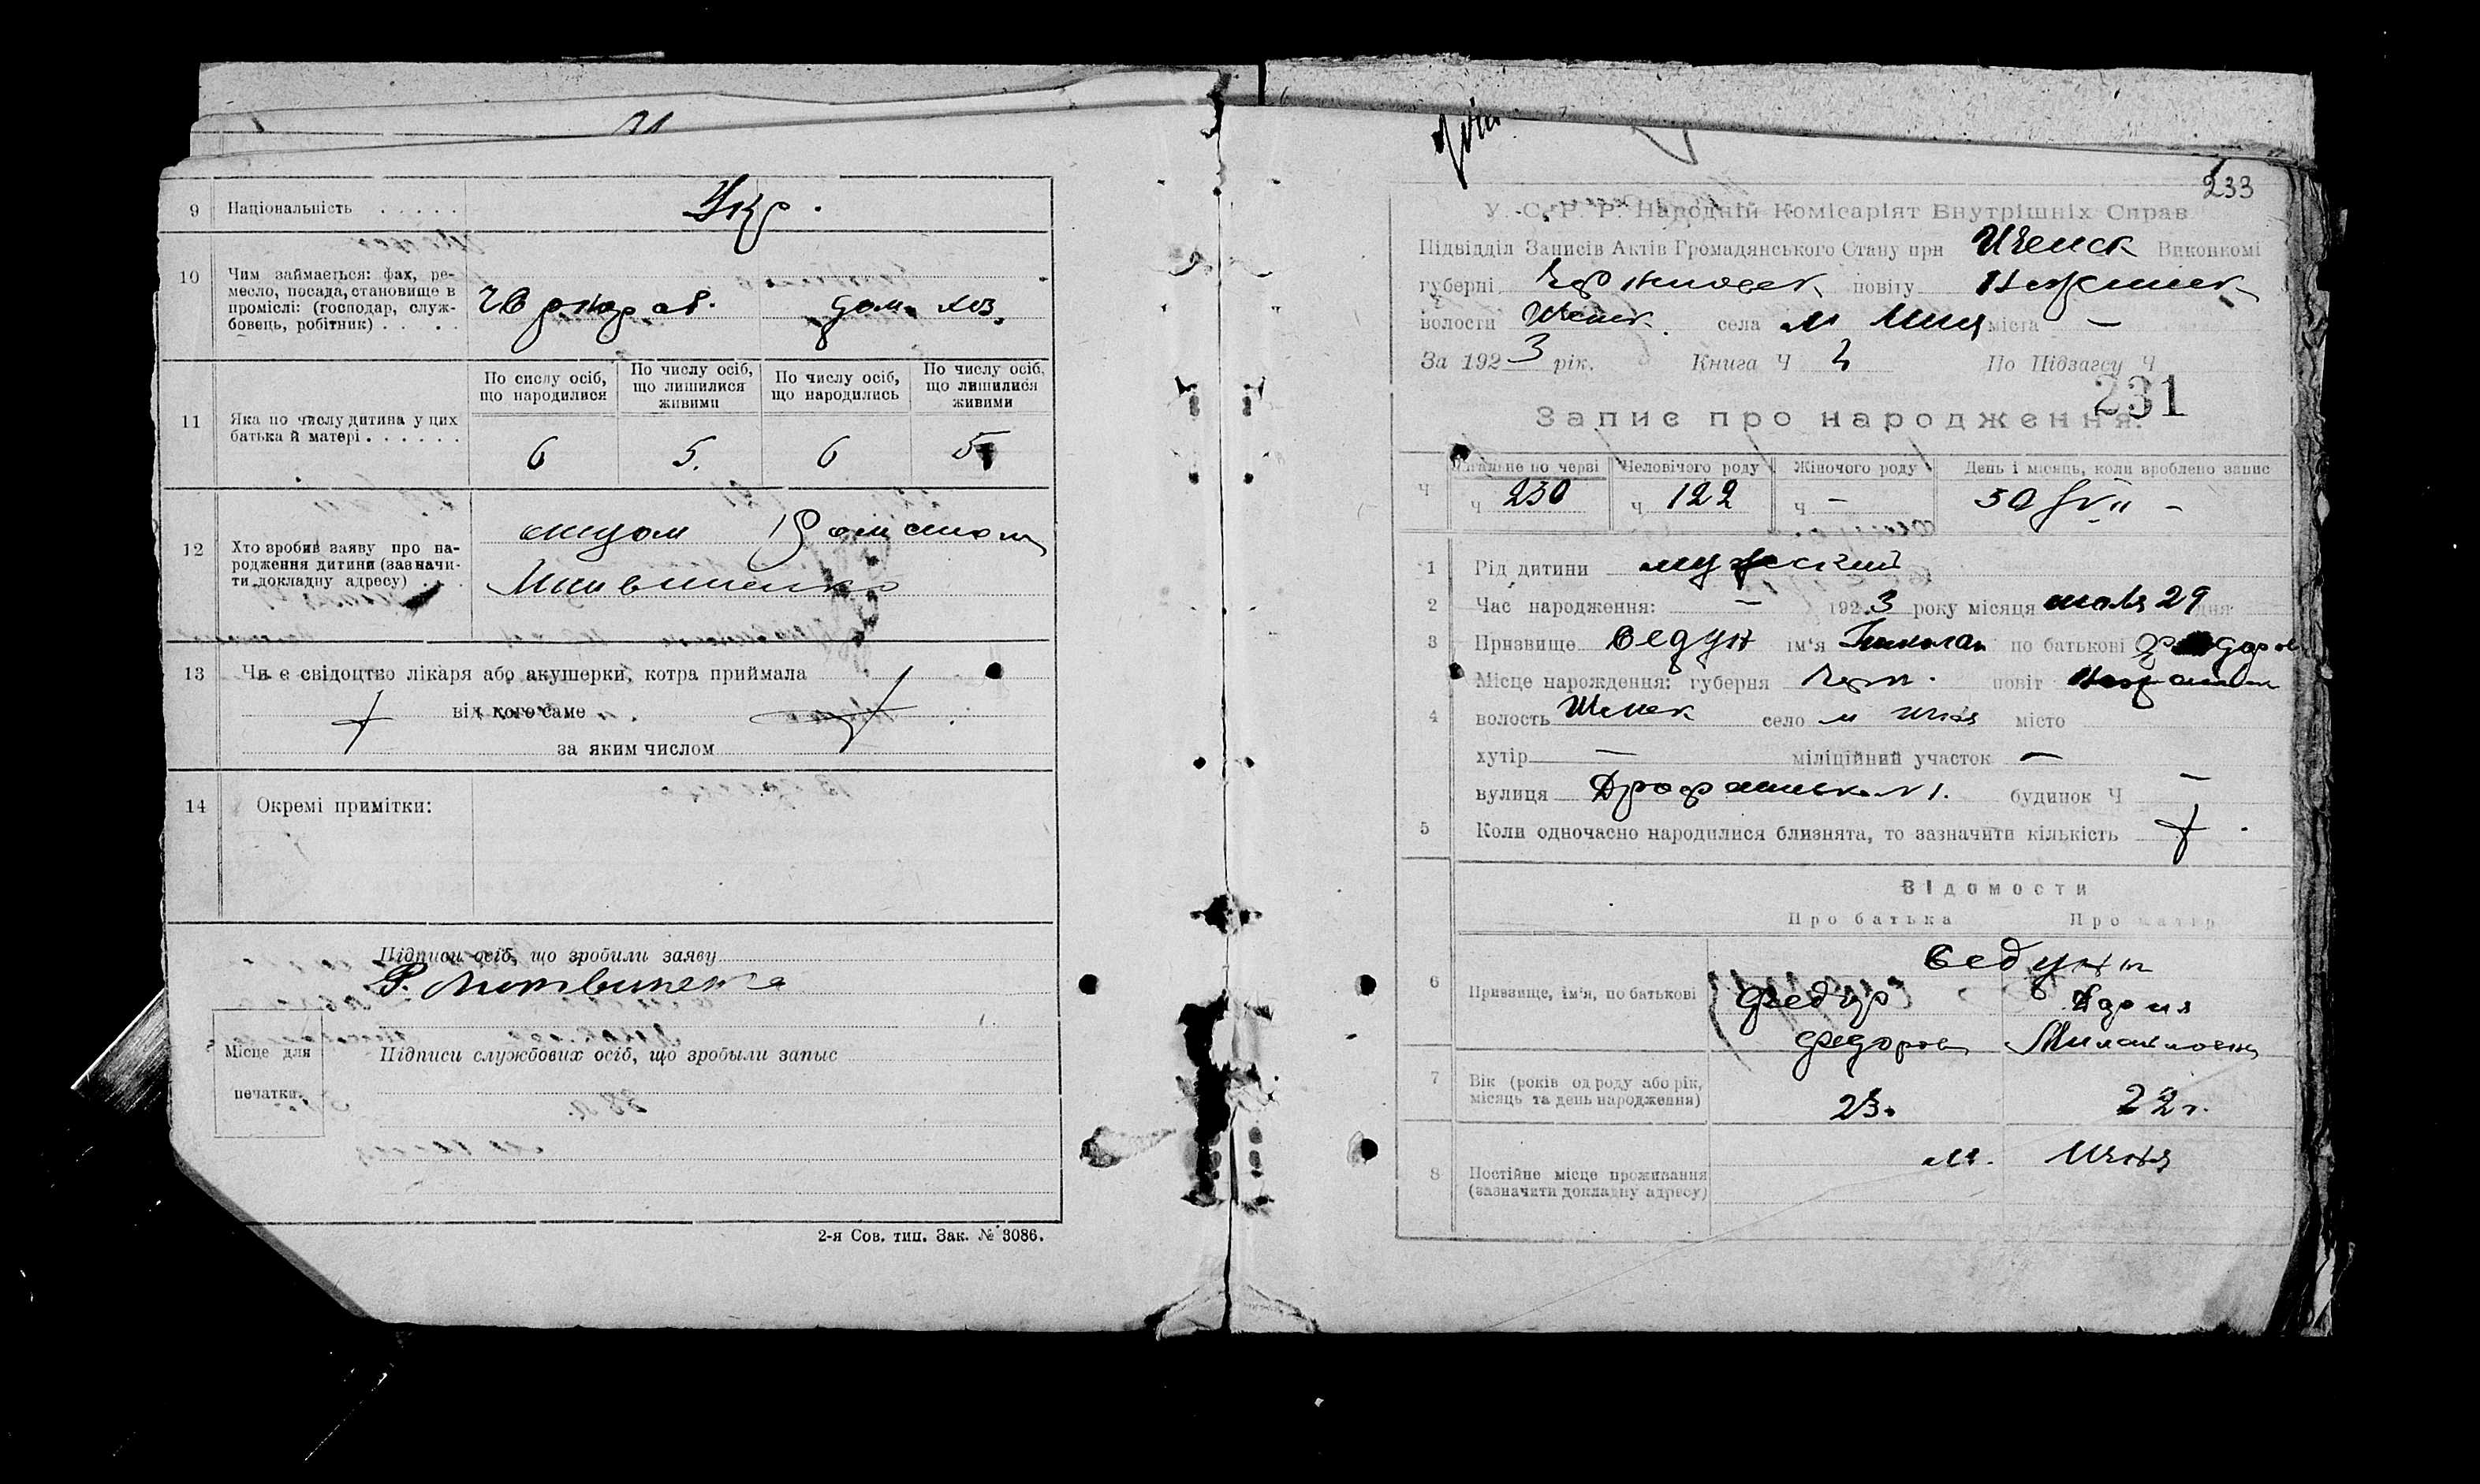 9 Національність . . . . . Укр.
10 Чим займається: фах, ре-
месло, посада, становище в
проміслі: (господар, служ-
бовець, робітник) . . . . дом. хоз.
11 Яка по числу дитина у цих
батька й матері . . . . . .
По сислу осіб,
що народилися
По числу осіб,
що лишилися
живими
По числу осіб,
що народились
По числу осіб,
що лишилися
живими
6 5. 6 5
12 Хто зробив заяву про на-
родження дитини (зазначи-
ти докладну адресу) . . .
отцом
13 Чи е свідоцтво лікаря або акушерки, котра приймала
від кого саме
за яким числом
14 Окремі примітки:
Підписи осіб, що зробили заяву
Р. Литвиненко
Місце для
печатки.
Підписи службових осіб, що зробыли запыс
2-я Сов. тип. Зак. № 3086.
233
У. С. Р. Р. Народній Комісаріят Внутрішніх Справ
Підвідділ Записів Актів Громадянського Стану при Ичнск Виконкомі
губерні Черниговск повіту Нежинск
волости Ичнск. села м Ичня міста —
За 1923 рік. Книга Ч 2 По Підзагсу Ч
231
Запис про народження.
Загальне по черзі Человічого роду Жіночого роду День і місяць, коли вроблено запис
Ч ч 230 ч 122 ч — 30/VII —
1 Рід дитини мужский
2 Час народження: — 1923 року місяця июля 29 дня
3 Призвище Ведун ім'я Николай по батькові Федоров
4 Місце нарождення: губерня Черн. повіт
волость Ичнск село м Ичня місто
хутір — міліційний участок —
вулиця будинок Ч —
5 Коли одночасно народилися близнята, то зазначити кількість
Відомости
Про батька Про матір
6 Призвище, ім'я, по батькові
Ведун
Федор
Федоров
7 Вік (років од роду або рік,
місяць та день народження) 23. 22 г.
8 Постійне місце проживання
(зазначити докладну адресу)
м. Ичня